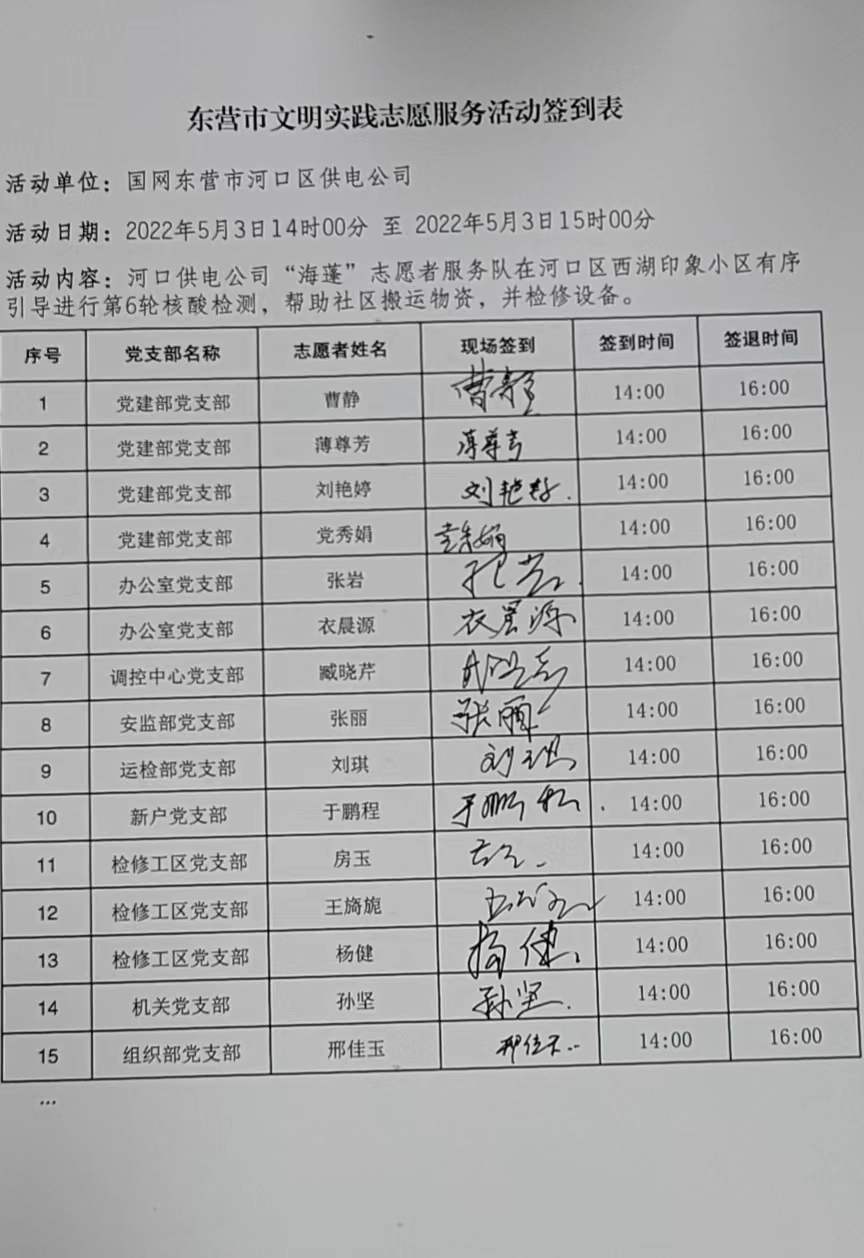 东营市文明实践志愿服务活动签到表
活动单位：国网东营市河口区供电公司
活动日期：2022年5月3日14时00分 至 2022年5月3日15时00分
活动内容：河口供电公司“海蓬”志愿者服务队在河口区西湖印象小区有序
引导进行第6轮核酸检测，帮助社区搬运物资，并检修设备。
序号 党支部名称 志愿者姓名 现场签到 签到时间 签退时间
1 党建部党支部 曹静 曹静 14:00 16:00
2 党建部党支部 薄尊芳 薄尊芳 14:00 16:00
3 党建部党支部 刘艳婷 刘艳婷 14:00 16:00
4 党建部党支部 党秀娟 党秀娟 14:00 16:00
5 办公室党支部 张岩 张岩 14:00 16:00
6 办公室党支部 衣晨源 衣晨源 14:00 16:00
7 调控中心党支部 臧晓芹 14:00 16:00
8 安监部党支部 张丽 张丽 14:00 16:00
9 运检部党支部 刘琪 刘琪 14:00 16:00
10 新户党支部 于鹏程 于鹏程 14:00 16:00
11 检修工区党支部 房玉 14:00 16:00
12 检修工区党支部 王旖旎 14:00 16:00
13 检修工区党支部 杨健 杨健 14:00 16:00
14 机关党支部 孙坚 孙坚 14:00 16:00
15 组织部党支部 邢佳玉 邢佳玉 14:00 16:00
...